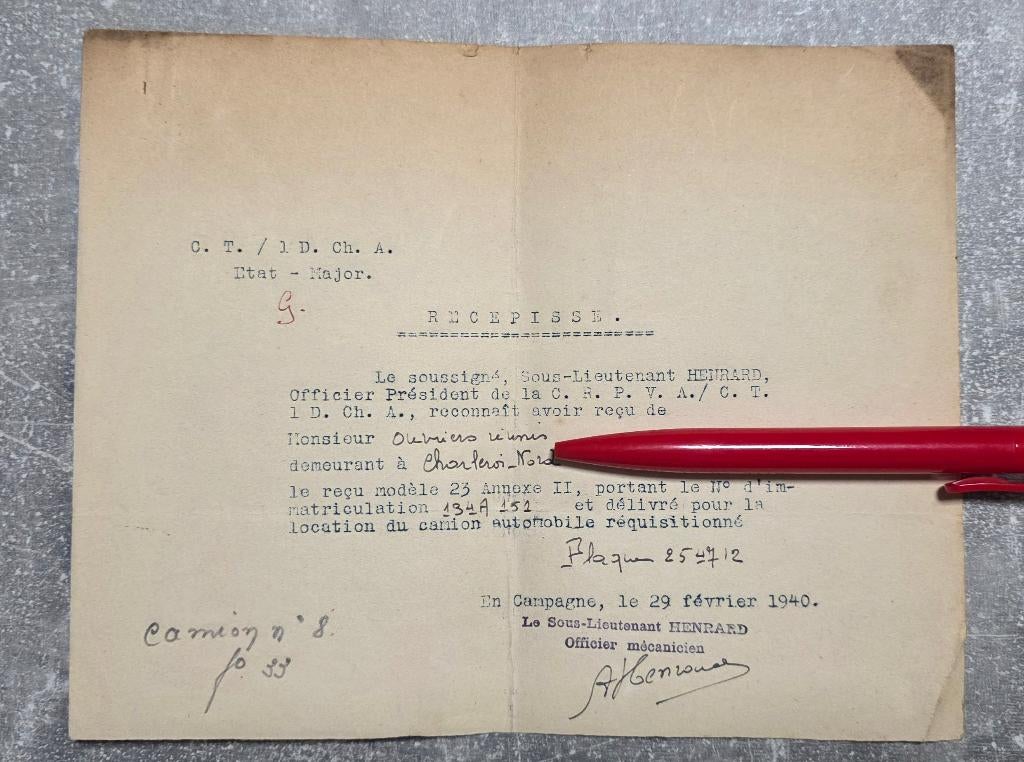 C. T. / 1 D. Ch. A.
Etat - Major.
G.
R E C E P I S S E .
Le soussigné, Sous-Lieutenant HENRARD,
Officier Président de la C. R. P. V. A./ C. T.
1 D. Ch. A., reconnaît avoir reçu de
Monsieur Ouvriers réunis
demeurant à Charleroi-Nord
le reçu modèle 23 Annexe II, portant le N° d'im-
matriculation 134A 151 et délivré pour la
location du camion automobile réquisitionné
Plaque 254712
En Campagne, le 29 février 1940.
Le Sous-Lieutenant HENRARD
Officier mécanicien
AHenrard
Camion n° 8.
fo 33